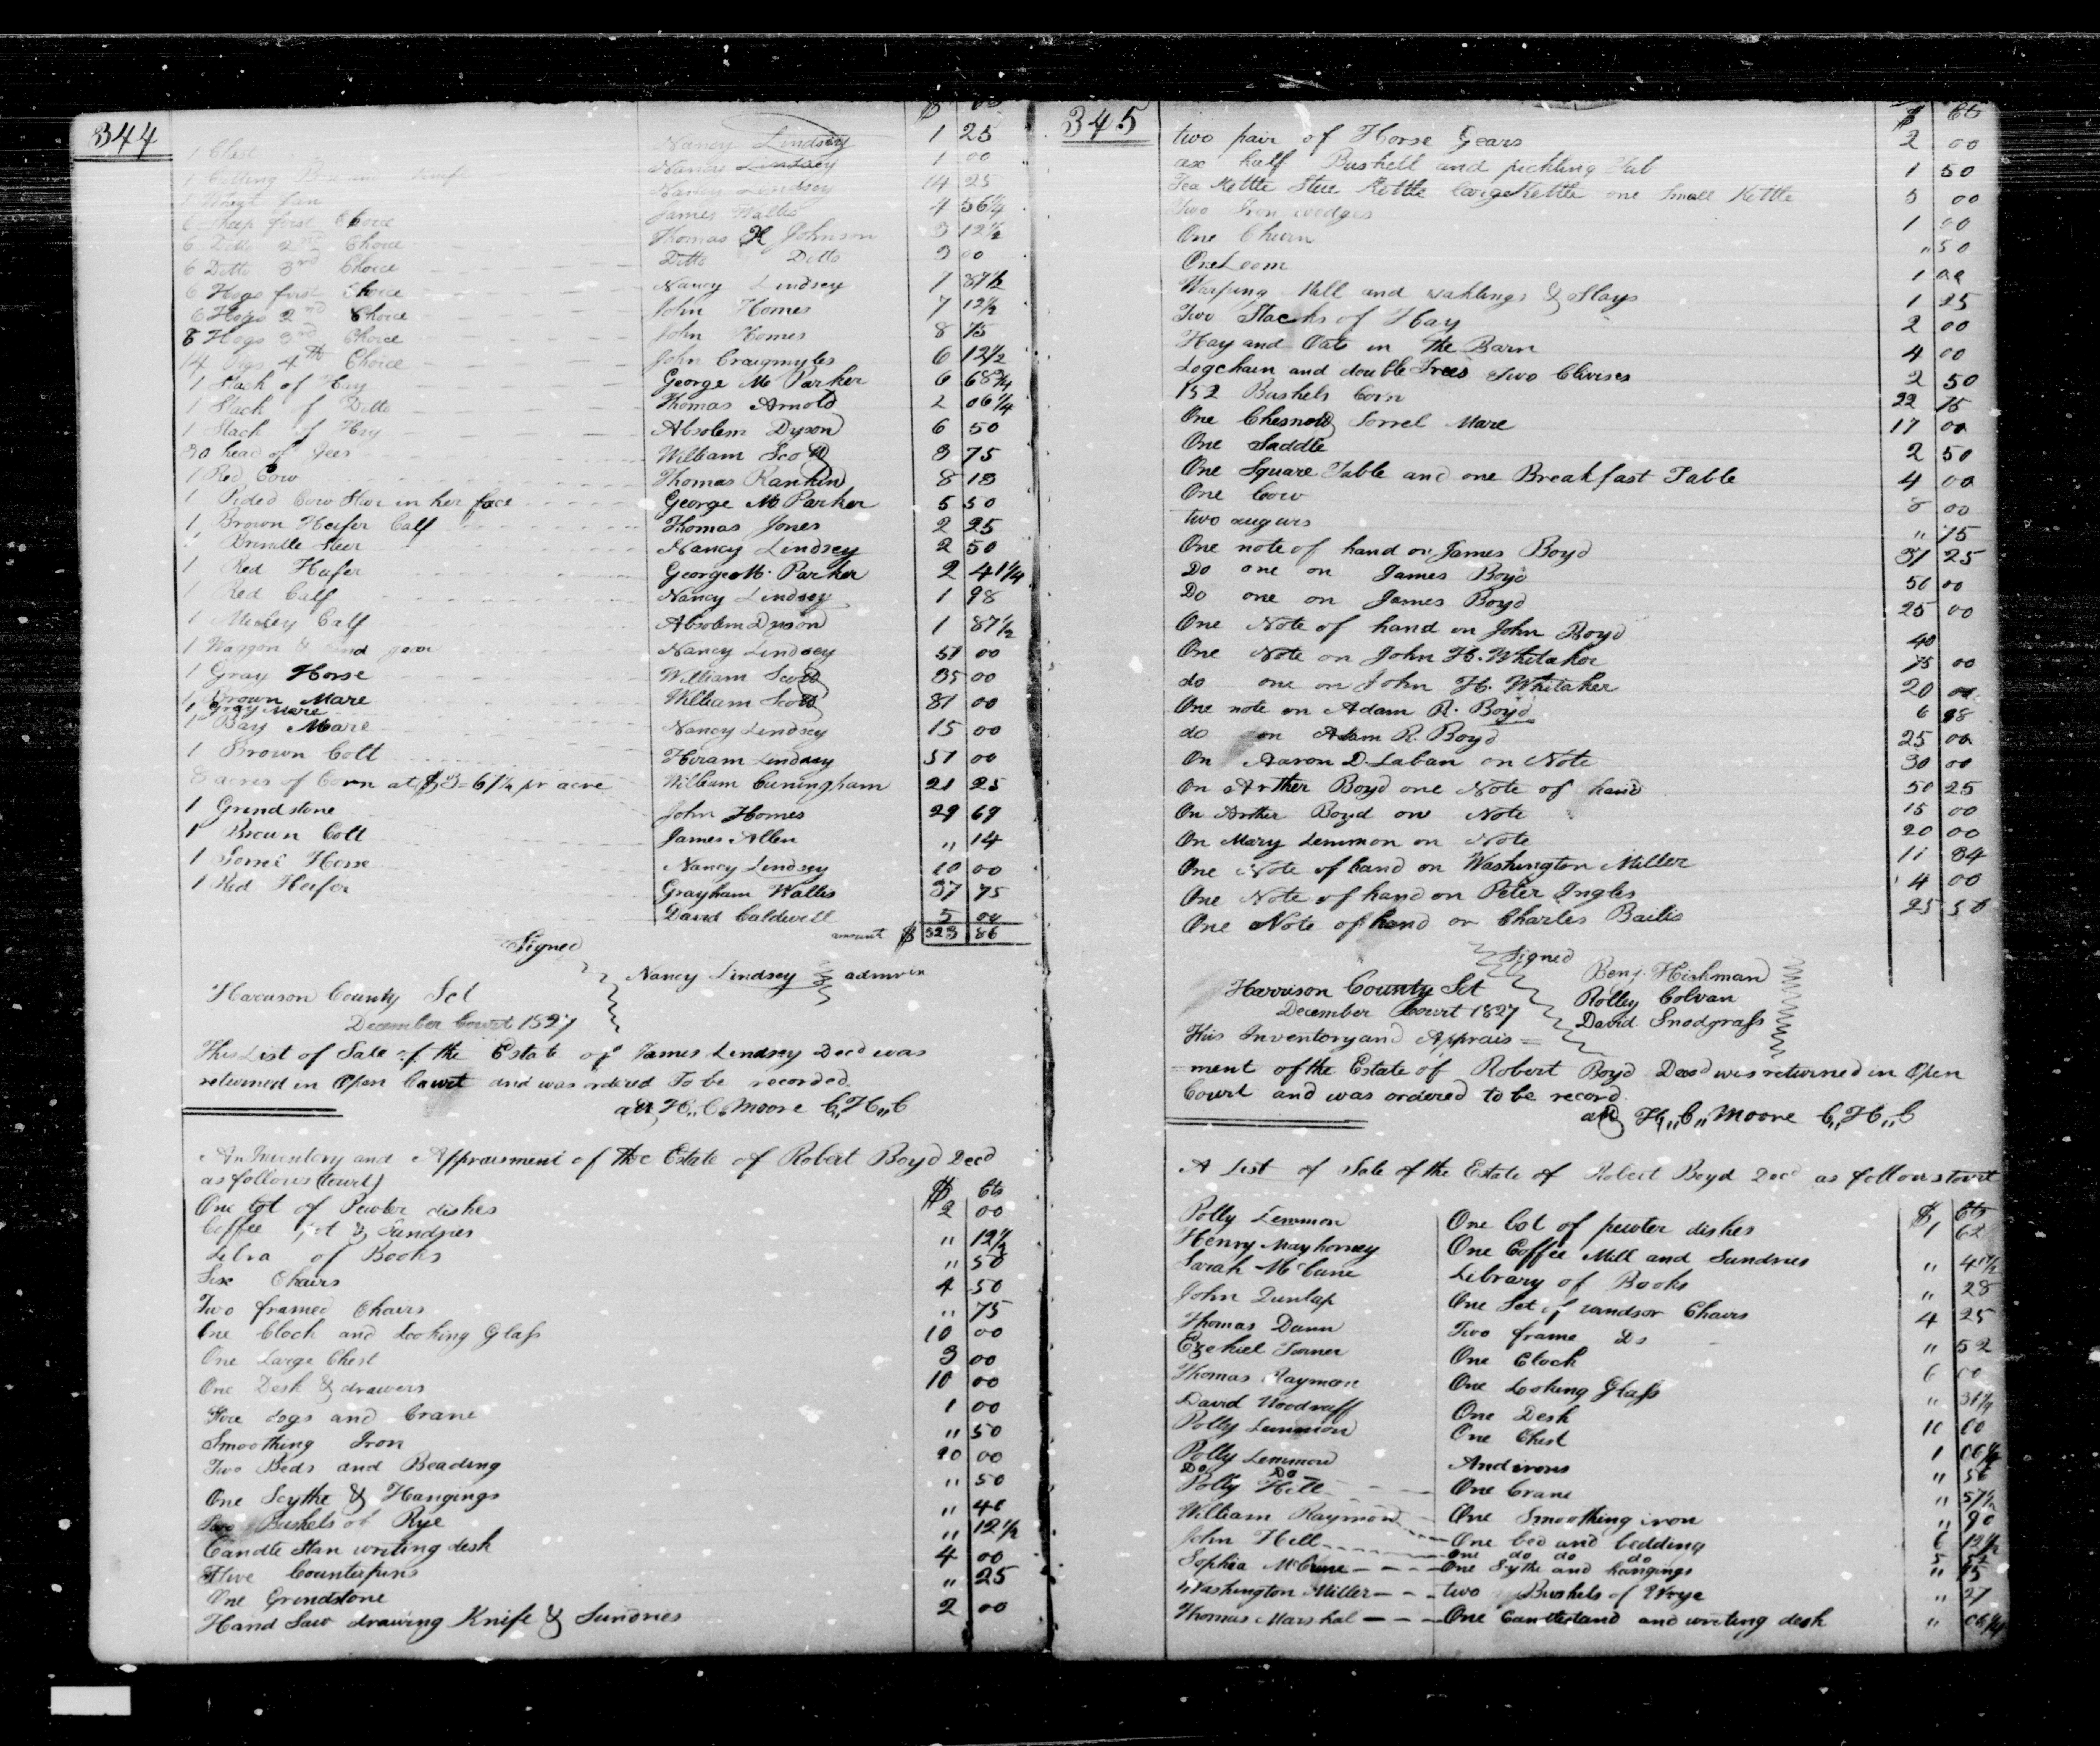 344
$ Cts
1 Chest Nancy Lindsey 1 25
1 Cutting Knife Nancy Lindsey 1 00
1 Wheat fan Nancy Lindsey 14 25
6 Sheep first Choice James Wallis 4 56 1/4
6 Ditto 2nd Choice Thomas H Johnson 3 12 1/2
6 Ditto 3rd Choice Ditto Ditto 3 00
6 Hogs first Choice Nancy Lindsey 1 87 1/2
6 Hogs 2nd Choice John Homes 7 12 1/2
8 Hogs 3rd Choice John Homes 8 75
14 Pigs 4th Choice John Craigmyles 6 12 1/2
1 Stack of Hay George M Parker 6 68 3/4
1 Stack of Ditto Thomas Arnold 2 06 1/4
1 Stack of Hay Absolem Dyson 6 50
30 head of Gees William Scott 3 75
1 Red Cow Thomas Rankin 8 13
1 Pided Cow Star in her face George M Parker 5 50
1 Brown Heifer Calf Thomas Jones 2 25
1 Brindle Steer Nancy Lindsey 2 50
1 Red Heifer George M. Parker 2 41 1/4
1 Red Calf Nancy Lindsey 1 98
1 Muley Calf Absolem Dyson 1 87 1/2
1 Waggon & hind gear Nancy Lindsey 51 00
1 Gray Horse William Scott 35 00
1 Brown Mare William Scott 81 00
1 Gray Mare
1 Bay Mare Nancy Lindsey 15 00
1 Brown Colt Hiram Lindsey 51 00
8 acres of Corn at $3=67 1/4 pr acre William Cuningham 21 25
1 Grindstone John Homes 29 69
1 Brown Colt James Allen " 14
1 Sorrel Horse Nancy Lindsey 10 00
1 Red Heifer Grayham Wallis 37 75
David Caldwell 5 00
amount $ 523 86
Signed
Nancy Lindsey admrix
Harrison County Sct
December Court 1827
This List of Sale of the Estate of James Lindsey Decd was
returned in Open Court and was ordered To be recorded
att H,, C,, Moore C,,H,,C
An Inventory and Appraisment of the Estate of Robert Boyd Decd
as follows (towit)
$ Cts
One lot of Pewter dishes 2 00
Coffee pot & Sundries " 12 1/2
Libra of Books " 50
Six Chairs 4 50
Two framed Chairs " 75
One Clock and Looking Glass 10 00
One Large Chest 3 00
One Desk & drawers 10 00
Fire dogs and Crane 1 00
Smoothing Iron " 50
Two Beds and Beading 20 00
One Scythe & Hangings " 50
Two Bushels of Rye " 40
Candle Stan writing desk " 12 1/2
Five Counterpins 4 00
One Grindstone " 25
Hand Saw drawing Knife & Sundries 2 00
345
$ Cts
two pair of Horse Gears 2 00
ax half Bushell and pickling Tub 1 50
Tea Kettle Stew Kettle large Kettle one Small Kettle 3 00
Two Iron wedges 1 00
One Churn " 50
One Loom 1 00
Warping Mill and & Slays 1 25
Two Stacks of Hay 2 00
Hay and Oats in The Barn 4 00
Logchain and double Trees Two Clivises 2 50
152 Bushels Corn 22 75
One Chesnott Sorrel Mare 17 00
One Saddle 2 50
One Square Table and one Breakfast Table 4 00
One Cow 8 00
two augurs " 75
One note of hand on James Boyd 31 25
Do one on James Boyd 50 00
Do one on James Boyd 25 00
One Note of hand on John Boyd 40
One Note on John H. Whitaker 75 00
do one on John H. Whitaker 20 00
One note on Adam R. Boyd 6 98
do on Adam R. Boyd 25 00
On Aaron D. Laban on Note 30 00
On Arther Boyd one Note of hand 50 25
On Arther Boyd on Note 15 00
On Mary Lemmon on Note 20 00
One Note of hand on Washington Miller 11 34
One Note of hand on Peter Ingles 4 00
One Note of hand on Charles Bailis 25 50
Signed
Benj. Hickman
Harrison County Sct Rolley Colvan
December Court 1827 David Snodgrass
This Inventory and Apprais=
=ment of the Estate of Robert Boyd Decd was returned in Open
Court and was ordered to be record
att H,,C,,Moore C,,H,,C
A List of Sale of the Estate of Robert Boyd Decd as follows towit
$ Cts
Polly Lemmon One lot of pewter dishes 1 62
Henry Mayhorney One Coffee Mill and Sundries "
Sarah McCune Library of Books " 28
John Dunlap One Set of windsor Chairs 4 25
Thomas Dunn Two frame Do " 52
Ezekiel Turner One Clock 6 00
Thomas Raymon One Looking Glass " 31 1/4
David Woodruff One Desk 10 00
Polly Lemmon One Chest 1 06 1/4
Polly Lemmon Andirons " 50
Do Do
Polly Hill One Crane " 57 1/2
William Raymon One Smoothing iron " 90
John Hill One bed and bedding 6 12 1/2
one do do do 5
Sophia McCune One Sythe and hangings " 15
Washington Miller two Bushels of Wrye " 27
Thomas Marshal One Canttestand and writing desk " 06 1/4